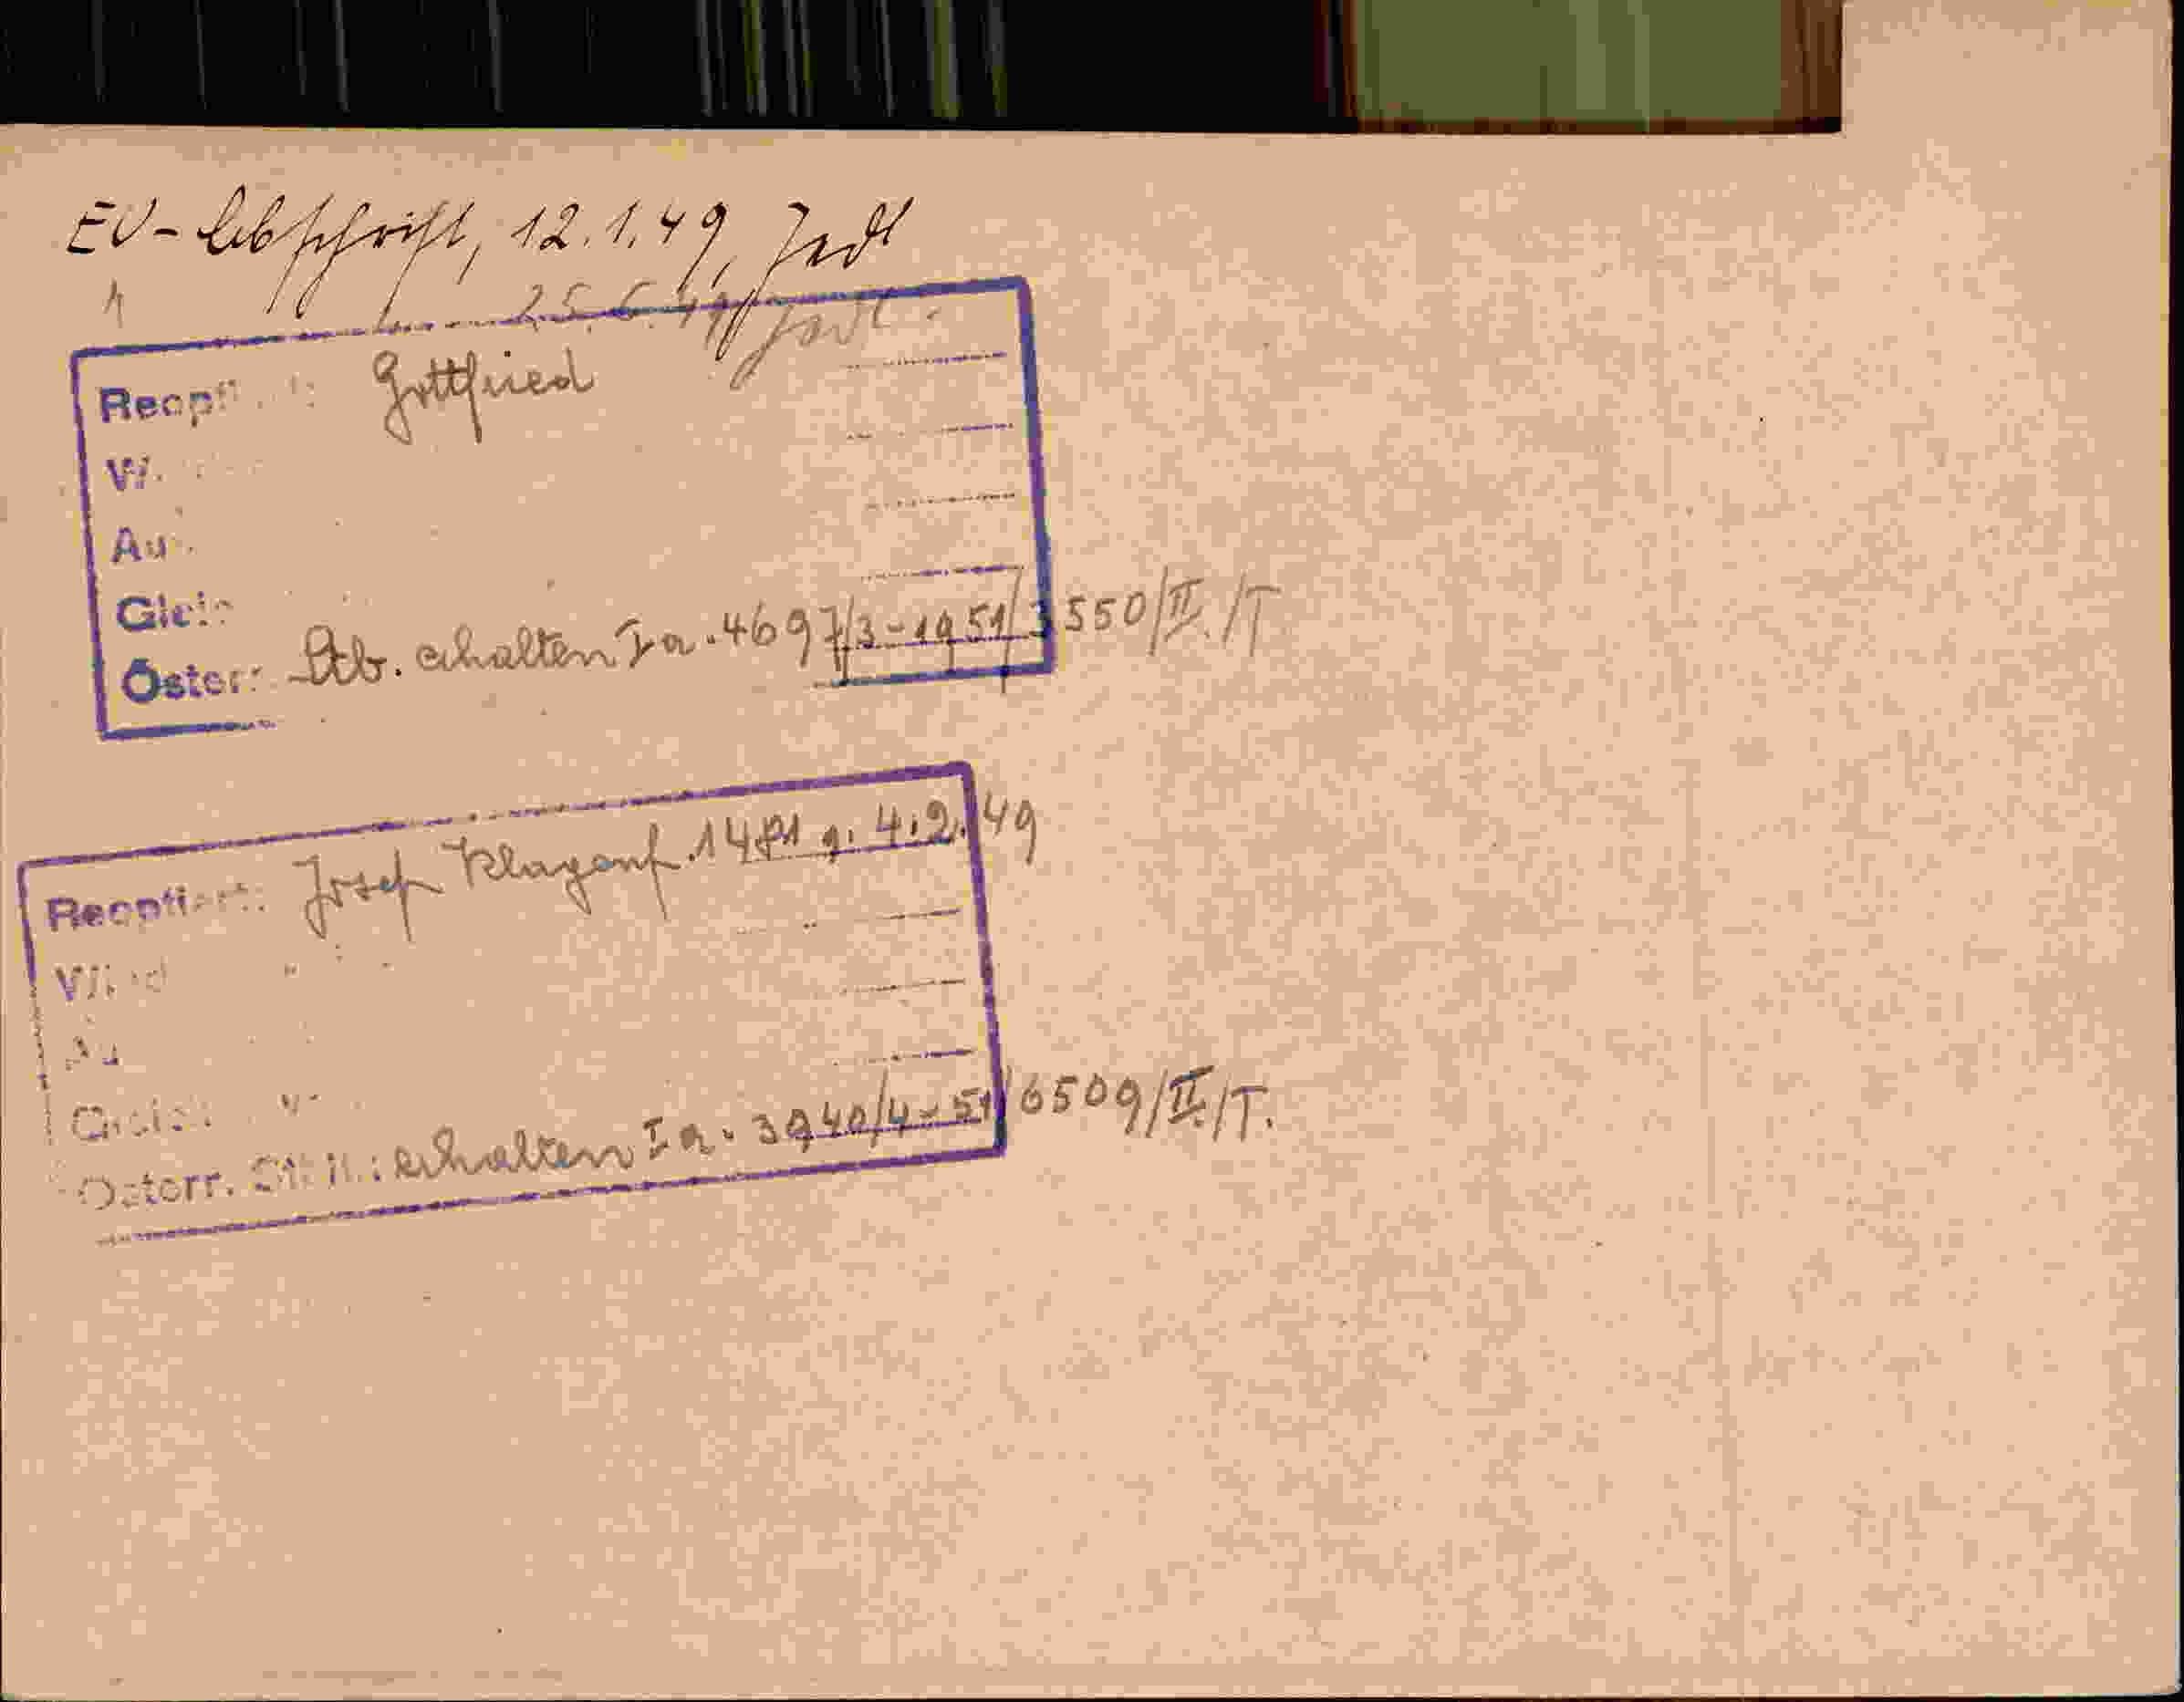 EV-Abschrift, 12.1.49, Jedl
" 25.6.49, Jedl.
Reopt Gottfried
W.
Au
Glei
Österr Stb. erhalten Ia. 4697/3-1951/3550/II./T
Reoptiert: Josef Klagenf. 1481 g. 4.2.49
Wied
Au
Gleich
Österr. Stb.: erhalten Ia. 3940/4-51/6509/II./T.